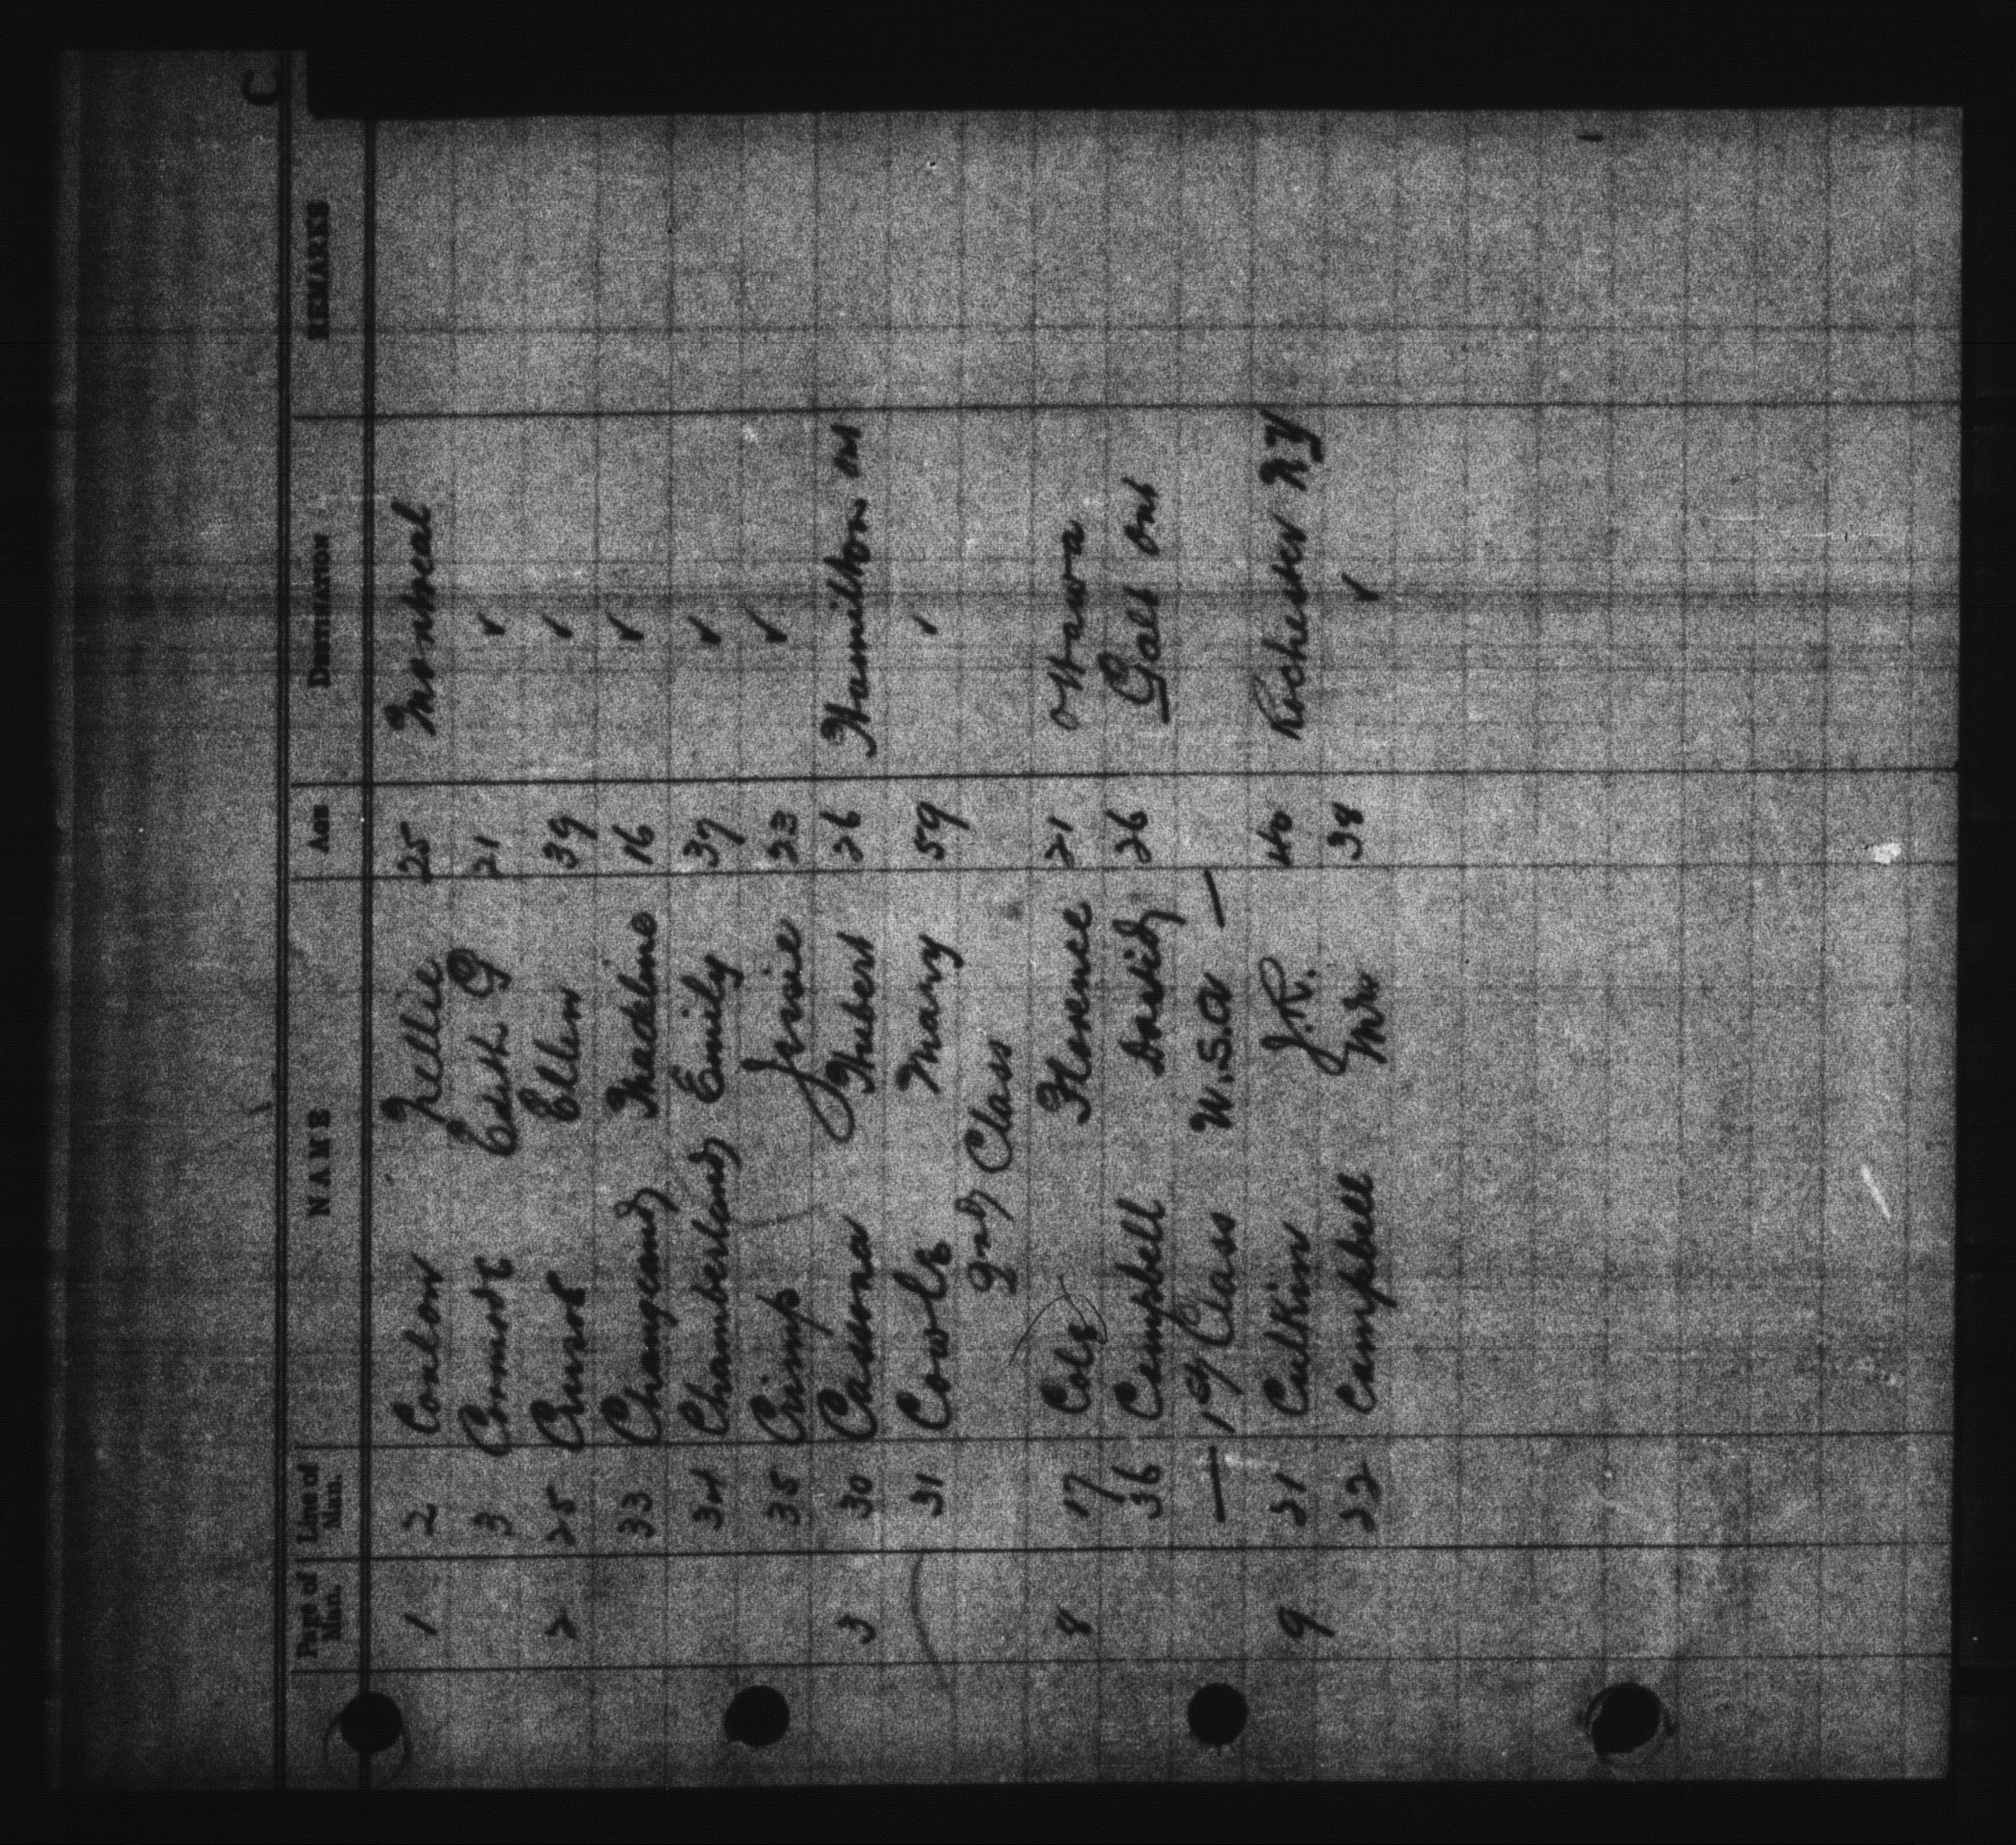 C
Page of Man. Line of Man. NAME AGE DESTINATION REMARKS
1 2 Conlon Nellie 25 Montreal
3 Edith G 21 ✓
2 25 Ellen 39 ✓
33 Madeline 16 ✓
34 Chamberland Emily 37 ✓
35 Crimp 23 ✓
3 30 Cassona Hubert 26 Hamilton Ont
31 Cowls Mary 59 ✓
2nd Class
8 17 Cole Florence 21 Ottawa
36 Campbell David 26 Galt Ont
— 1st Class U.S.A —
9 21 Culkin J.R. 40 Rochester NY
22 Campbell Mr 38 ✓